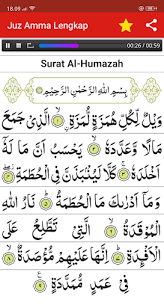 18.09
Juz Amma Lengkap
00:26 / 00:59
Surat Al-Humazah
بِسْمِ اللّٰهِ الرَّحْمٰنِ الرَّحِيْمِ
وَيْلٌ لِّكُلِّ هُمَزَةٍ لُّمَزَةٍ ۝١ اۨلَّذِيْ جَمَعَ
مَالًا وَّعَدَّدَهٗ ۝٢ يَحْسَبُ اَنَّ مَا لَهٗٓ
اَخْلَدَهٗ ۝٣ كَلَّا لَيُنْۢبَذَنَّ فِى الْحُطَمَةِ ۝٤
وَمَآ اَدْرٰىكَ مَا الْحُطَمَةُ ۝٥ نَارُ اللّٰهِ
الْمُوْقَدَةُ ۝٦ الَّتِيْ تَطَّلِعُ عَلَى
الْاَفْـِٕدَةِ ۝٧ اِنَّهَا عَلَيْهِمْ مُّؤْصَدَةٌ ۝٨
فِيْ عَمَدٍ مُّمَدَّدَةٍ ۝٩